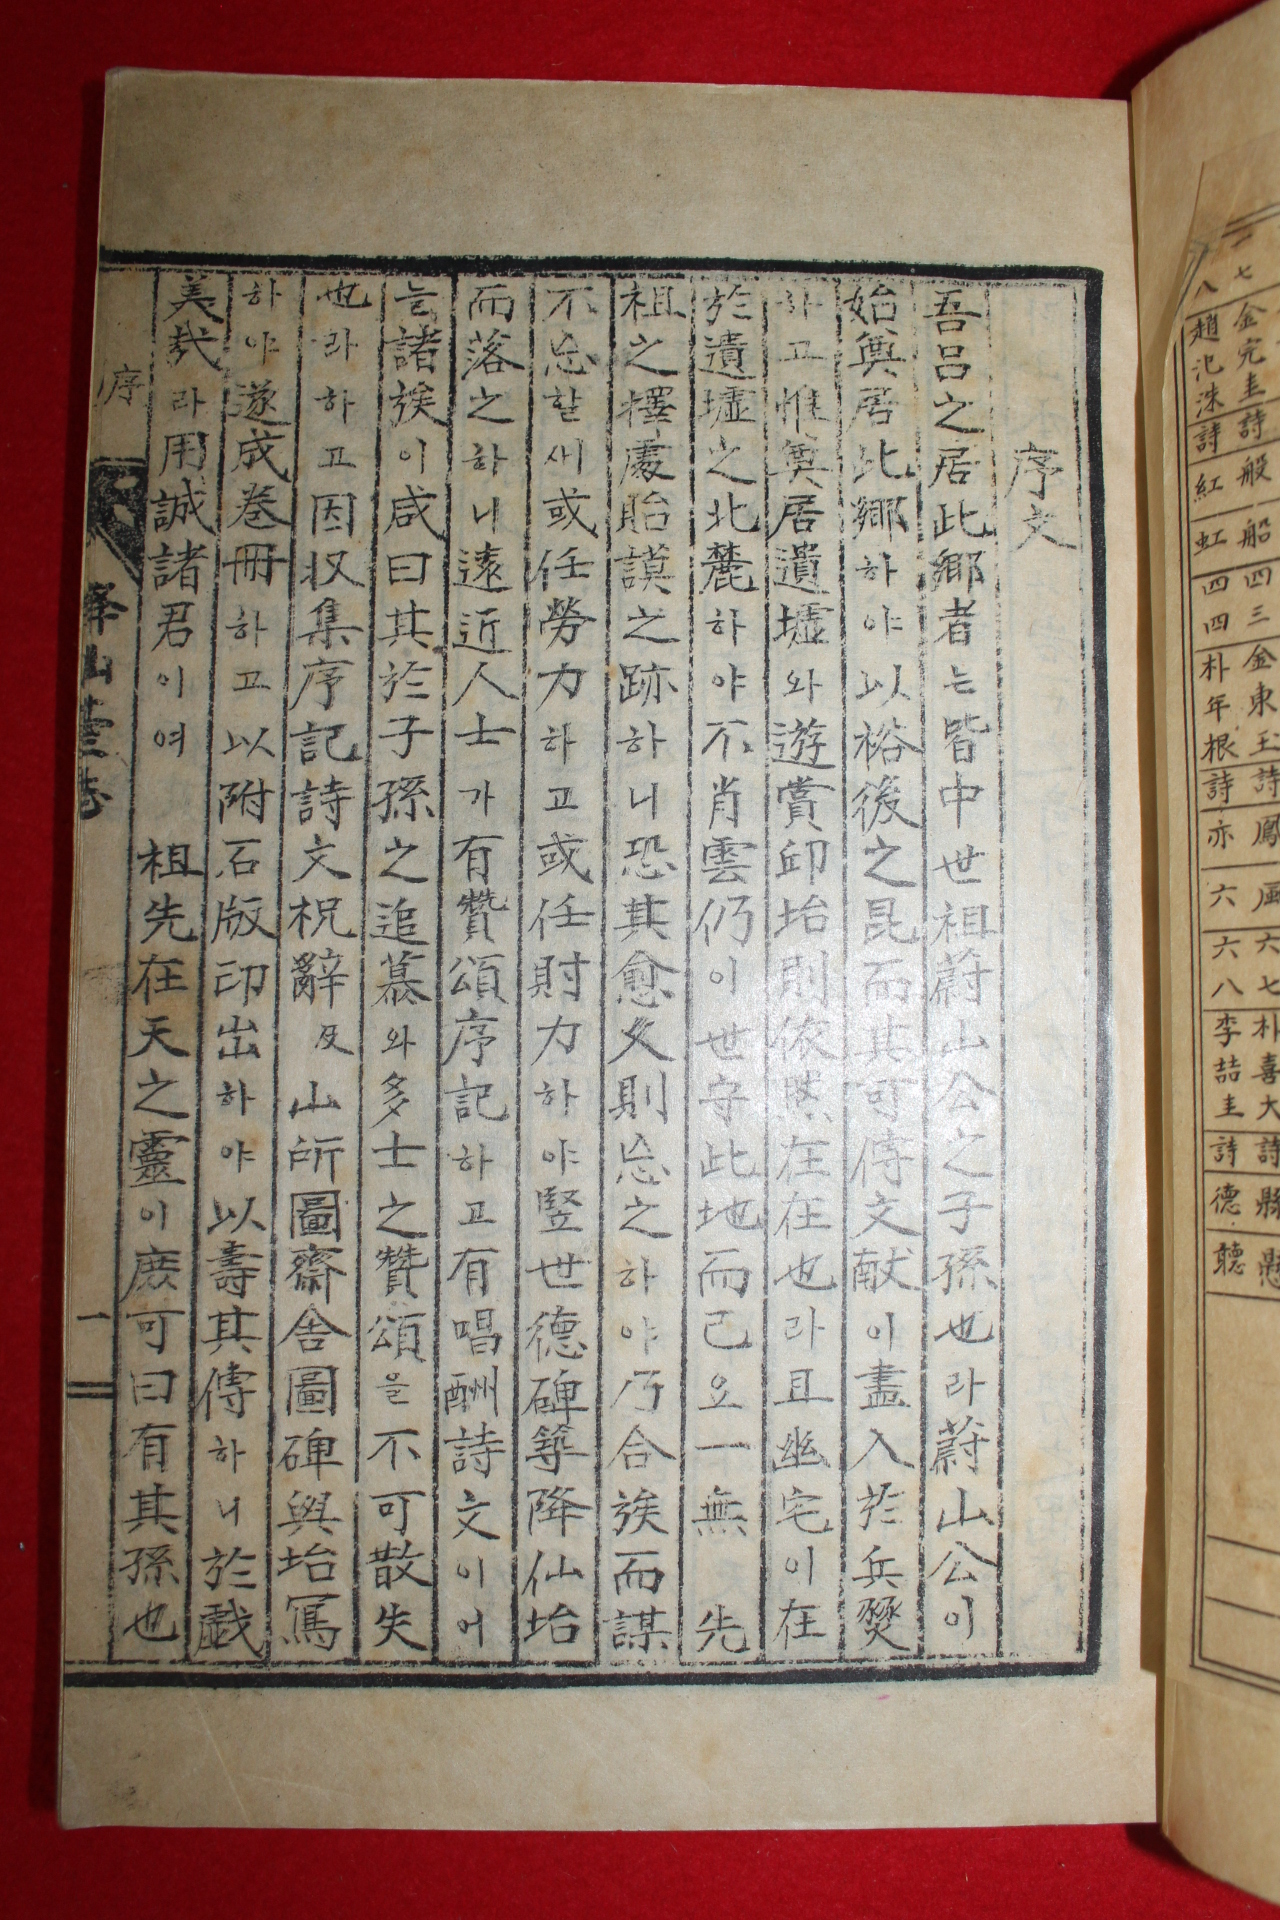 序文
吾呂之居此鄉者는皆中世祖蔚山公之子孫也라蔚山公이
始奠居此鄉하야以裕後之昆而其可傳文献이盡入於兵燹
하고惟奠居遺墟와遊賞邱坮則依然在在也라且幽宅이在
於遺墟之北麓하야不肖雲仍이世守此地而已요一無 先
祖之擇處貽謨之跡하니恐其愈久則忘之하야乃合族而謀
不忘할새或任勞力하고或任財力하야竪世德碑築降仙坮
而落之하니遠近人士가有贊頌序記하고有唱酬詩文이어
늘諸族이咸曰其於子孫之追慕와多士之贊頌을不可散失
也라하고因収集序記詩文祝辭及山所圖齋舍圖碑與坮寫
하야遂成卷冊하고以附石版印出하야以壽其傳하니於戱
美哉라用誠諸君이여 祖先在天之靈이庶可曰有其孫也
序
一
七 金完圭詩 般 船 四三 金東玉詩 鳳 凮 六七 朴喜大詩 縣
八 趙氾洙詩 紅 虹 四四 朴年根詩 亦 六 六八 李喆圭詩 德 聽